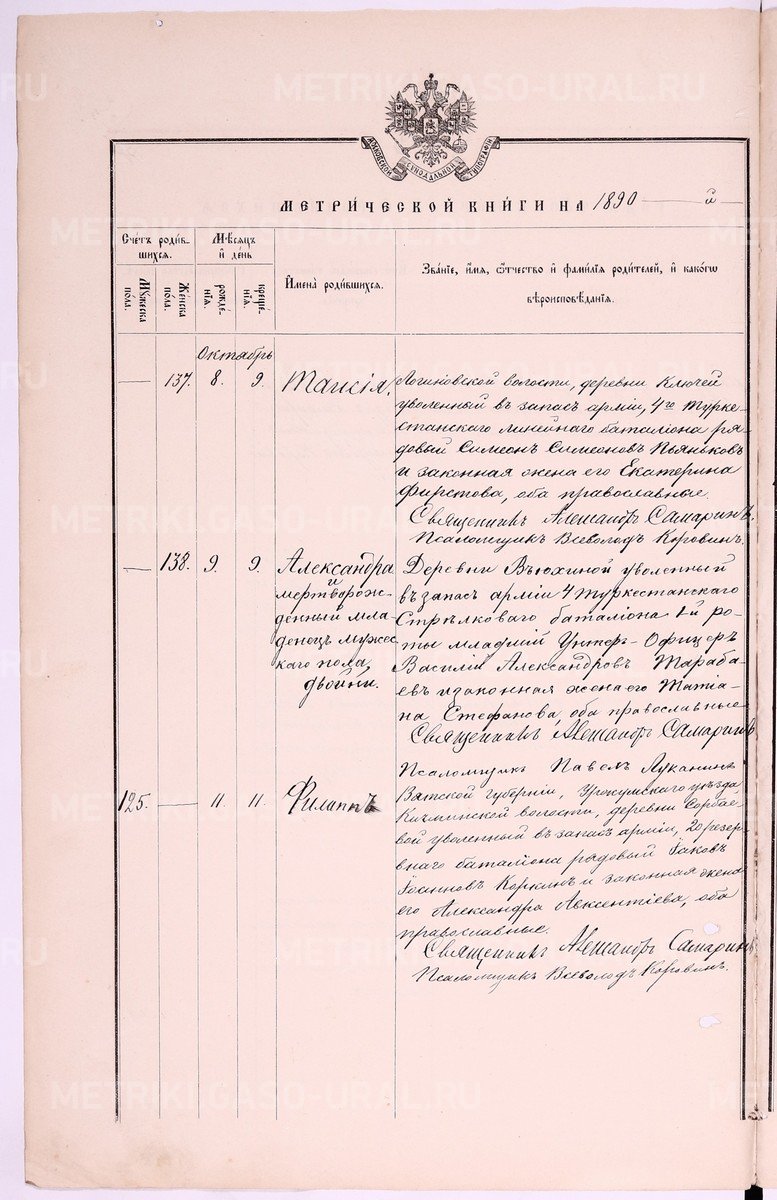 METRIKI.GASO-URAL.RU
МОСКОВСКОЙ СѴНОДАЛЬНОЙ ТИПОГРАФІИ
МЕТРИ́ЧЕСКОЙ КНИ́ГИ НА 1890 — й —
Сче́тъ роди́вшихся.
Мѣ́сяцъ и҆ де́нь
И҆мена̀ роди́вшихся.
Зва́нїе, и҆́мя, ѻ҆́тчество и҆ фами́лїя роди́телей, и҆ како́гѡ вѣроисповѣ́данїя.
Мꙋ́жеска по́ла.
Же́нска по́ла.
рожде́нїя.
креще́нїя.
Октябрь
— 137. 8. 9. Таисія,
Логиновской волости, деревни Ключей
уволенный въ запасъ арміи, 4го Турке-
станскаго линейнаго баталіона ря-
довый Симеонъ Симеоновъ Пьяньковъ
и законная жена его Екатерина
Фирстова, оба православные.
Священникъ Александръ Самаринъ.
Псаломщикъ Всеволодъ Коровинъ.
— 138. 9. 9. Александра
и
мертворож-
денный мла-
денецъ мужес
каго пола,
двойни.
Деревни Вьюхиной уволенный
въ запасъ арміи 4 Туркестанскаго
Стрѣлковаго баталіона 1-й ро-
ты младшій Унтеръ-Офицеръ
Василій Александровъ Тараба-
евъ и законная жена его Татіа-
на Стефанова, оба православные
Священникъ Александръ Самаринъ
Псаломщикъ Павелъ Луканинъ
125. — 11. 11. Филиппъ
Вятской губерніи, Уржумскаго уѣзда,
волости, деревни
вой уволенный въ запасъ арміи, 20 резер-
внаго баталіона рядовый Іаковъ
Іоанновъ Коркинъ и законная жена
его Александра Авксентіева, оба
православные.
Священникъ Александръ Самаринъ
Псаломщикъ Всеволодъ Коровинъ.